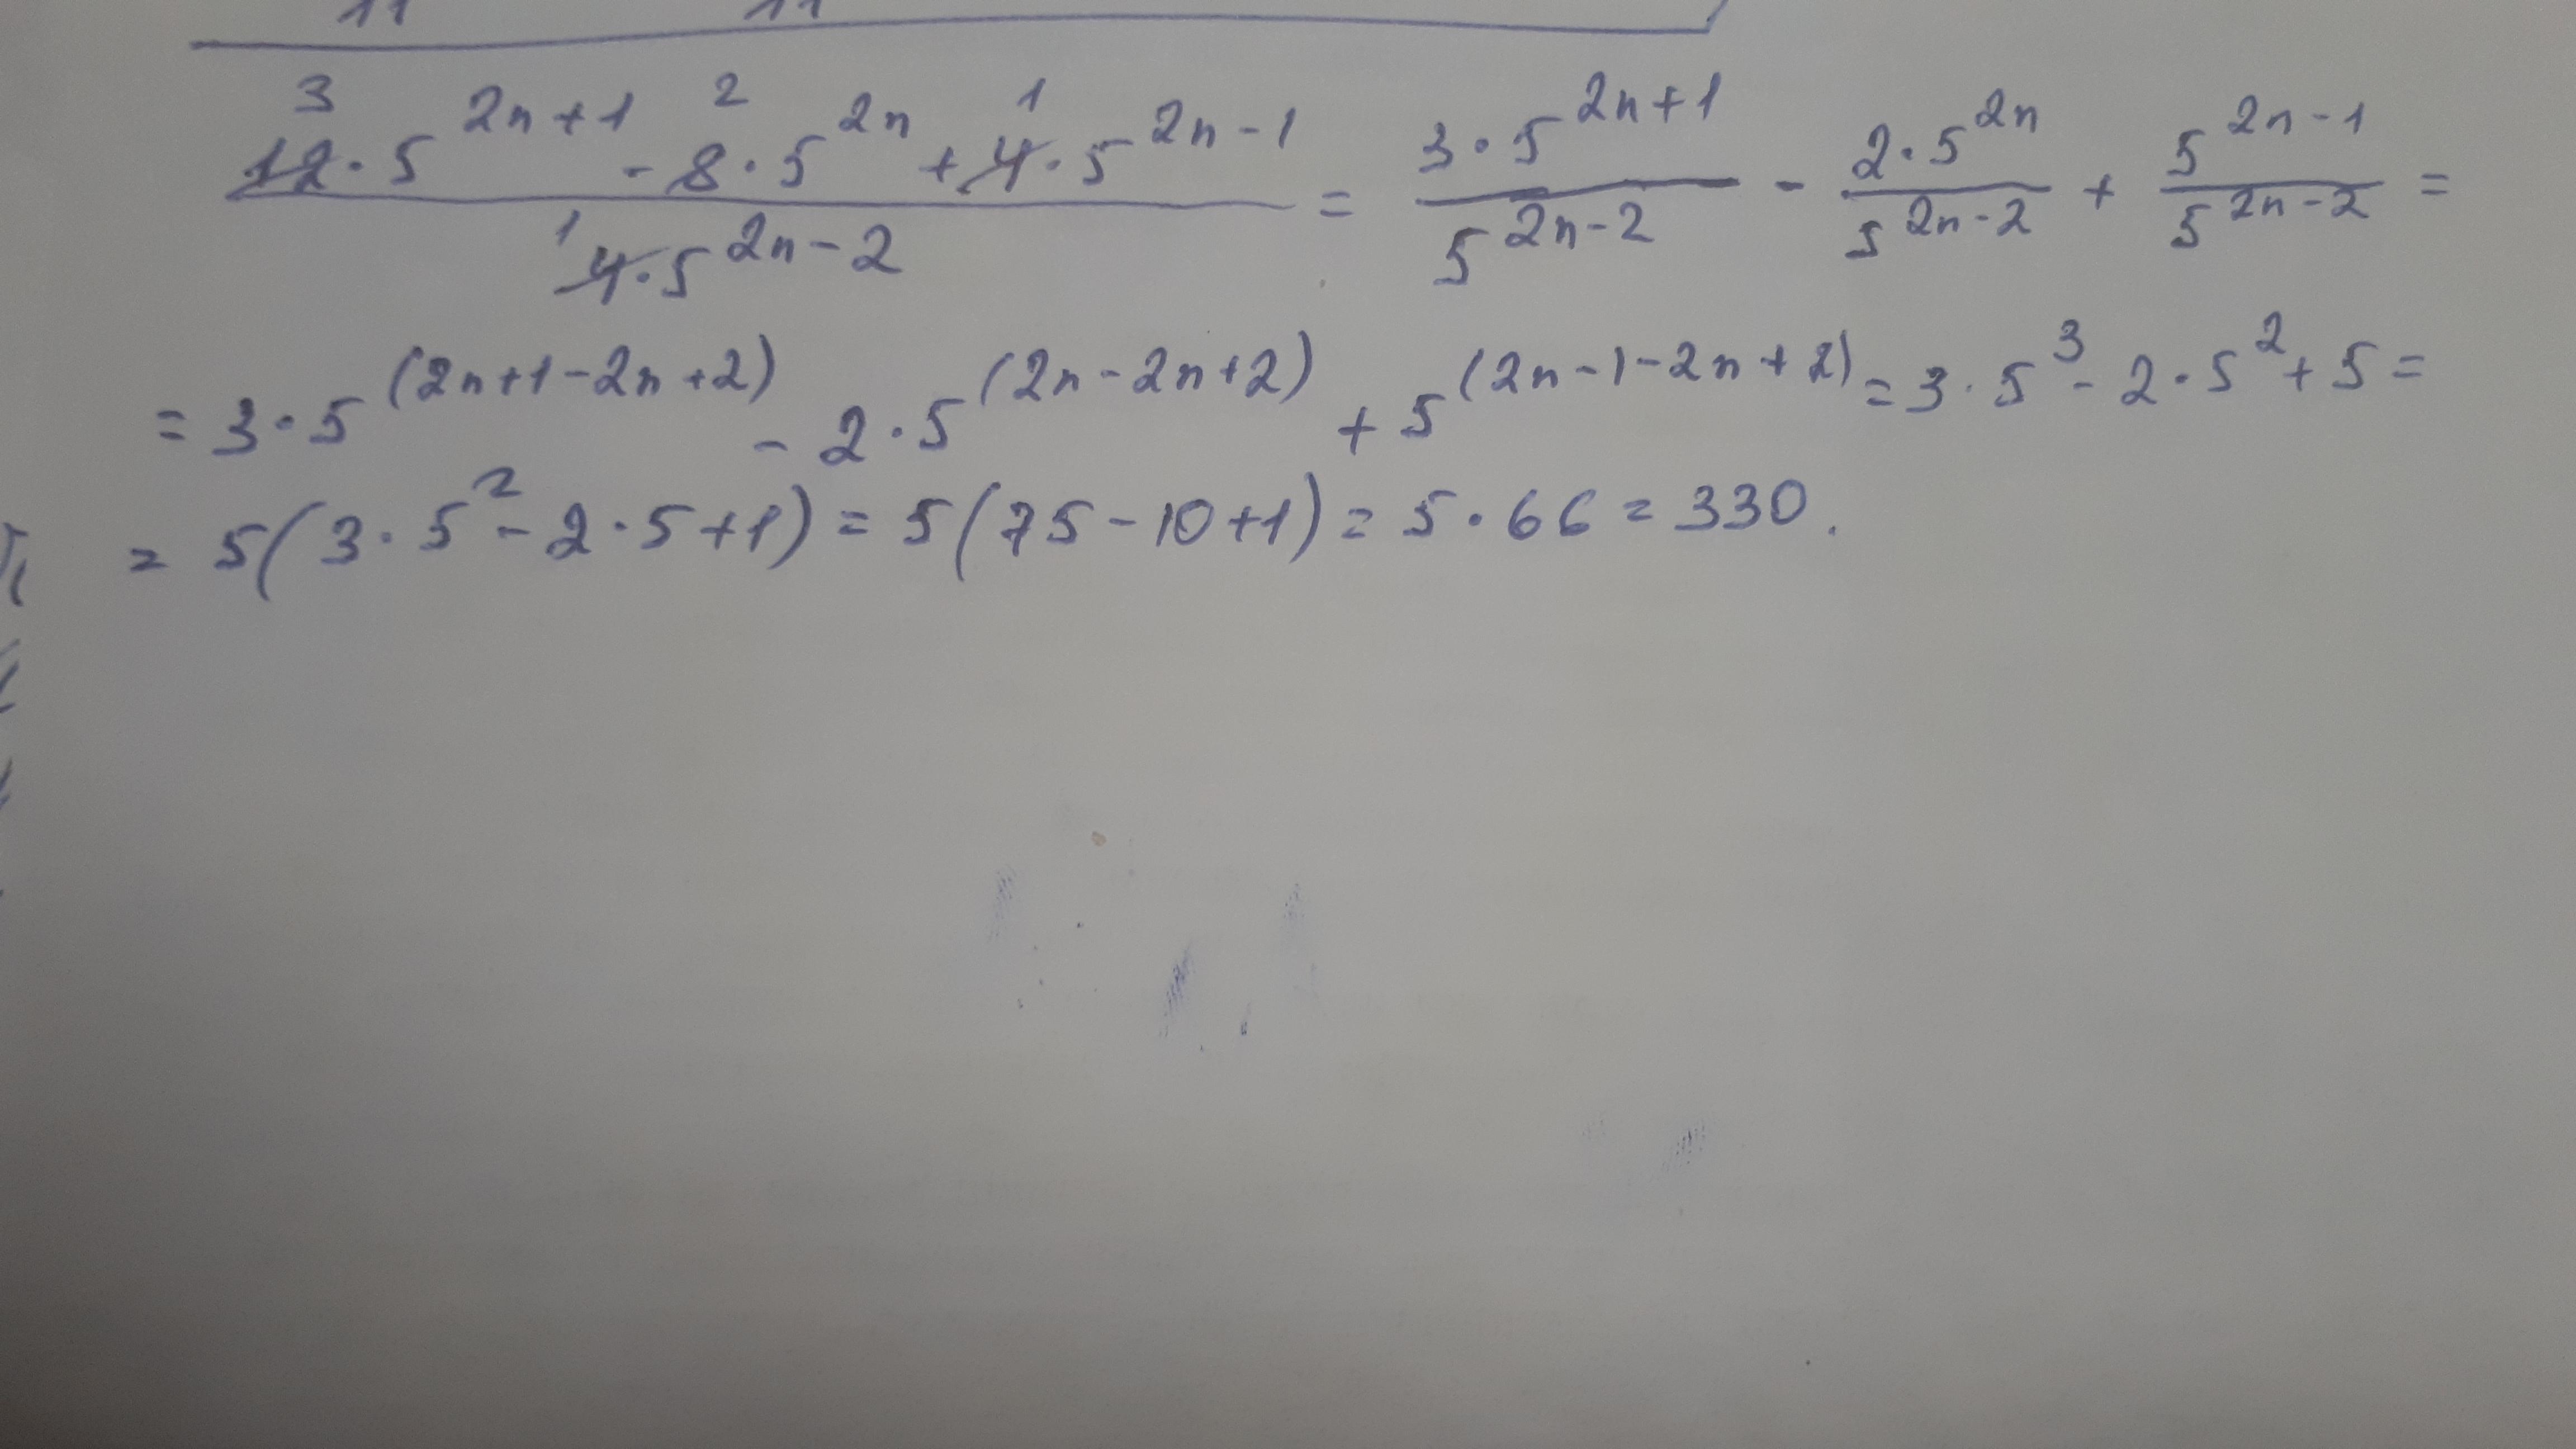 11 11
3 2 1
12·5^(2n+1) - 8·5^(2n) + 4·5^(2n-1) / 4·5^(2n-2) = 3·5^(2n+1) / 5^(2n-2) - 2·5^(2n) / 5^(2n-2) + 5^(2n-1) / 5^(2n-2) =
1
= 3·5^(2n+1-2n+2) - 2·5^(2n-2n+2) + 5^(2n-1-2n+2) = 3·5^3 - 2·5^2 + 5 =
= 5(3·5^2 - 2·5 + 1) = 5(75 - 10 + 1) = 5·66 = 330.